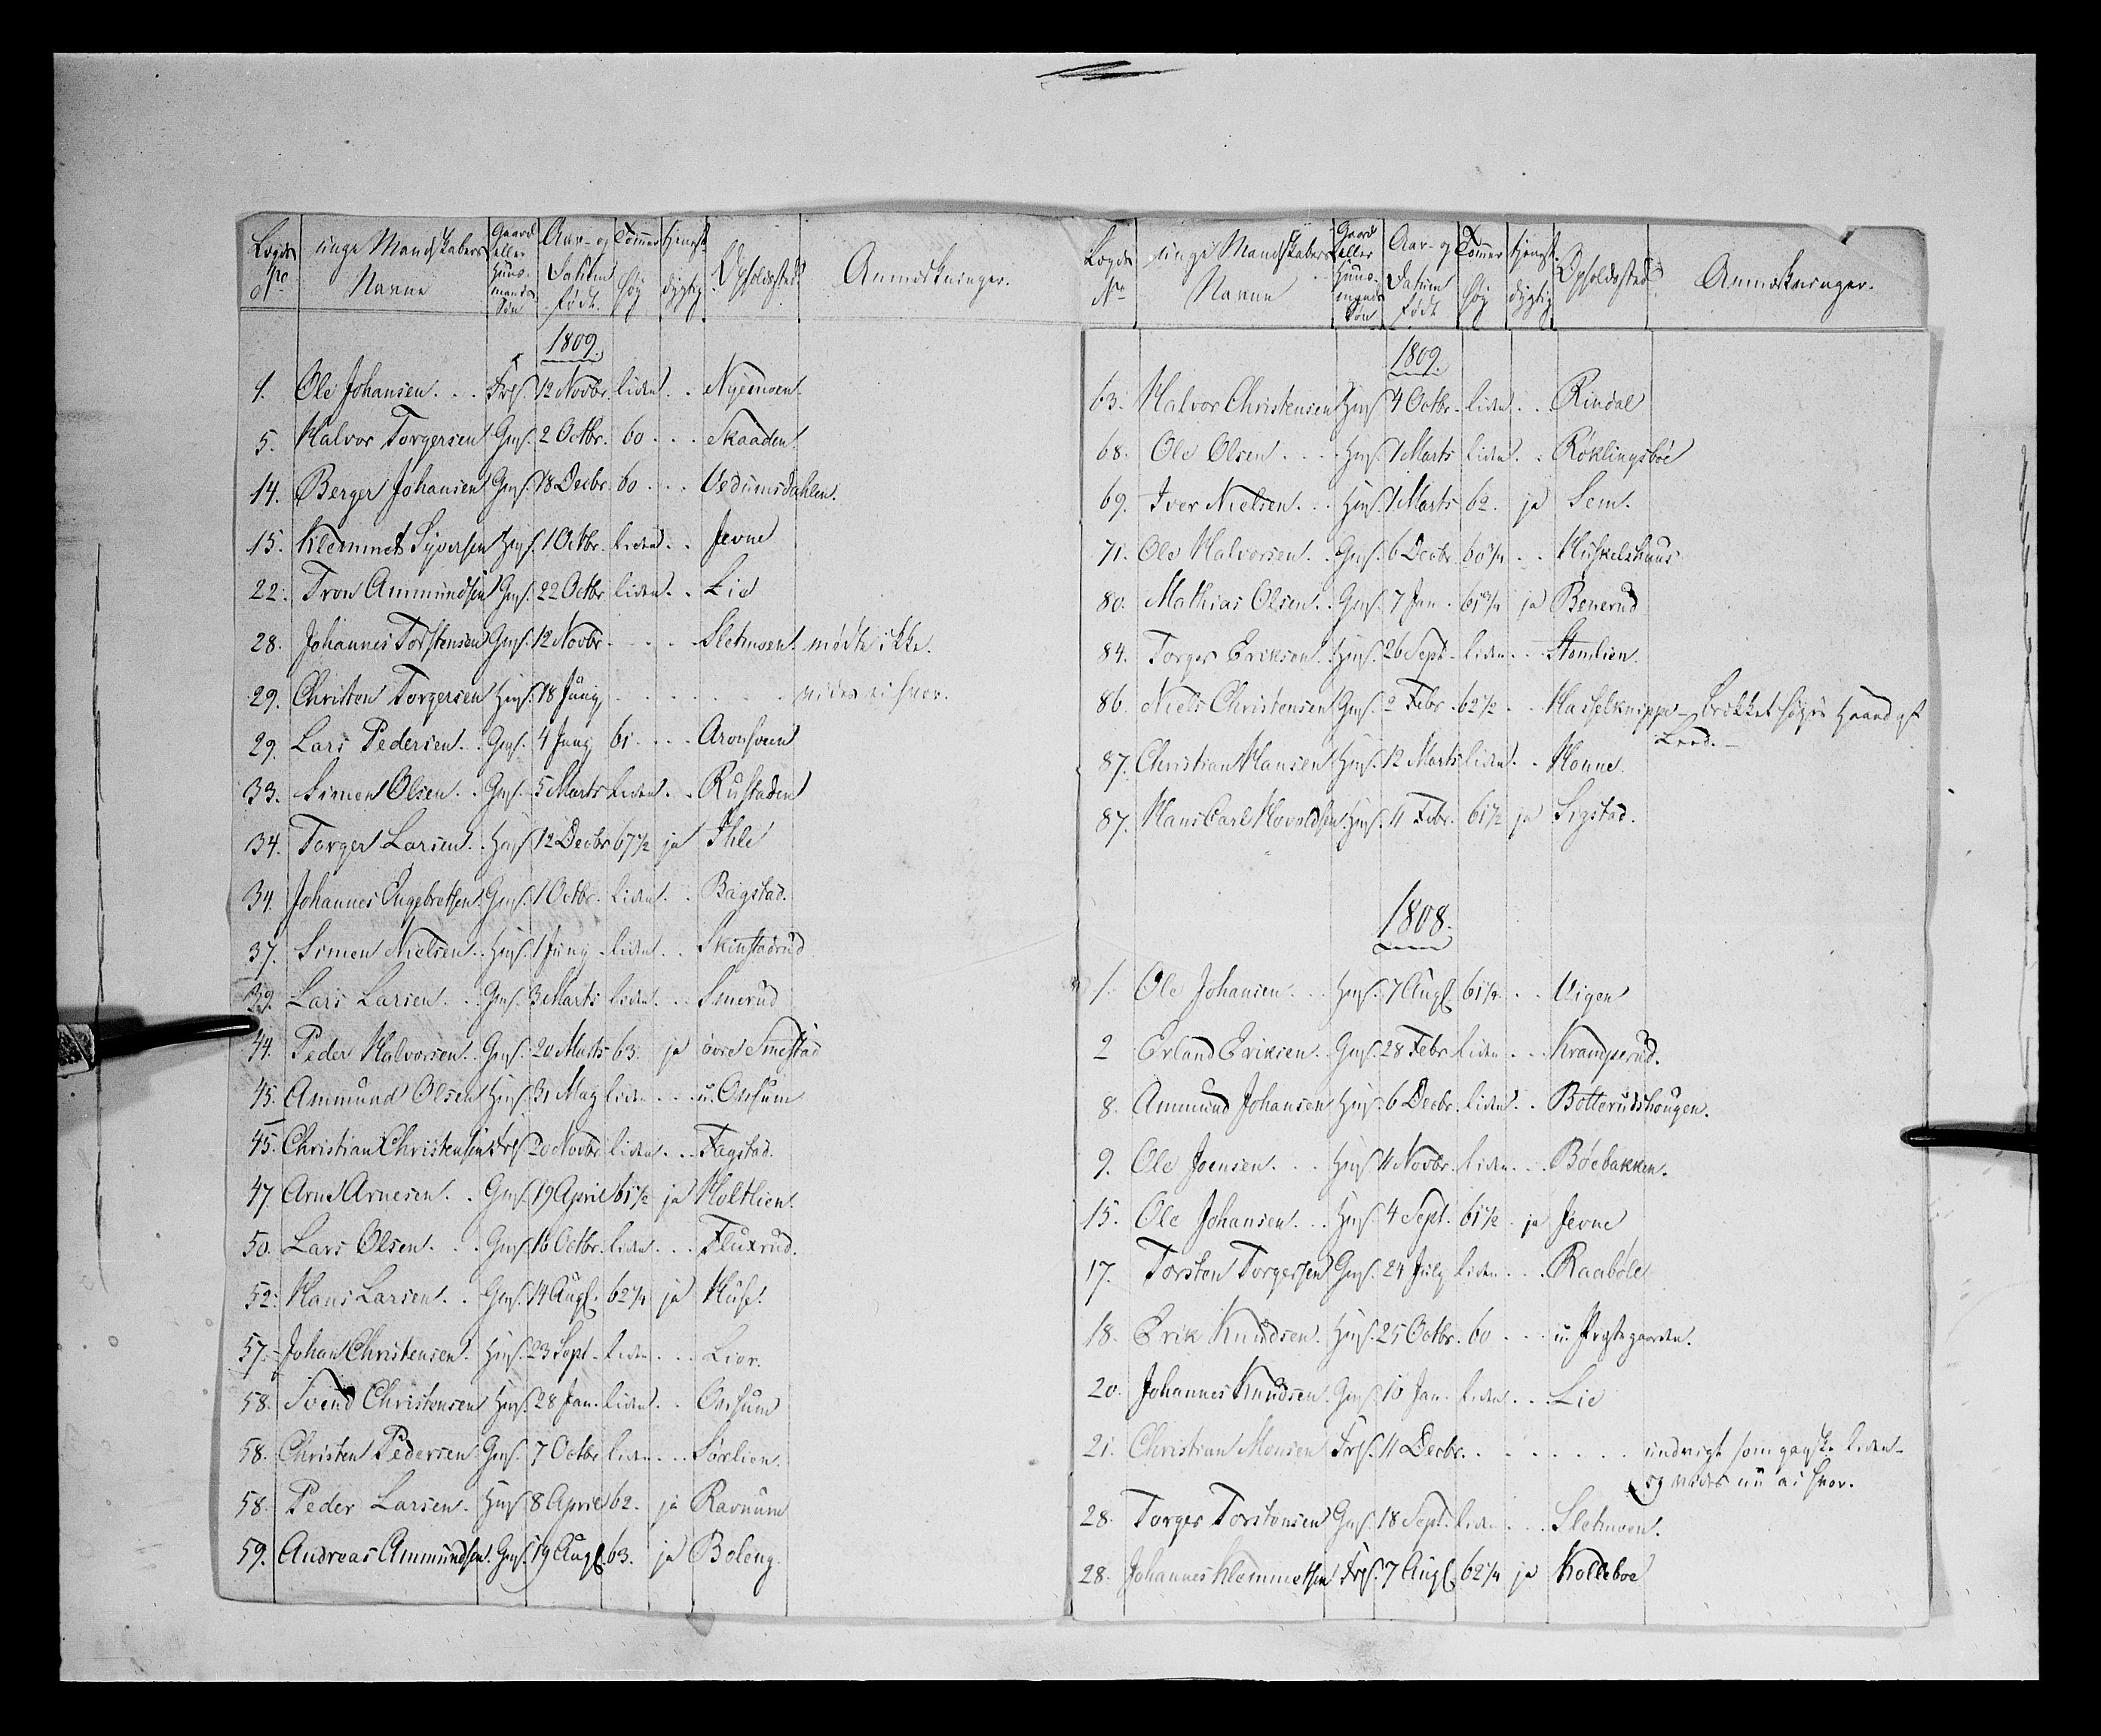 Legds No unge Mandskabers Navne Gaard eller Huusmands Søn Aar- og Datum født Tommer høy tjenst dygtig Opholdssted Anmærkninger.
1809.
1. Ole Johansen. Frs. 12 Novbr liden. Nyemoen.
5. Halvor Torgersen Gms. 2 Octbr. 60. Skaaden.
14. Berger Johansen Gms. 18 Decbr 60. Vedumsdahlen.
15. Klemmet Syversen Hms. 1 Octbr. liden. Jevne
22. Tron Ammundsen Gms. 22 Octbr liden. Lie
28. Johannes Torstensen Gms. 12 Novbr. Sletmoen. mødte ikke.
29. Christen Torgersen Hms. 18 Juny vides ei hvor.
29. Lars Pedersen. Gms. 4 Juny 61. Aronsveen
33. Simen Olsen. Gms. 5 Marts liden. Rustaden
34. Torger Larsen. Hms 12 Decbr 67 1/2 ja Ihle
34. Johannes Engebretsen. Gms. 1 Octbr. liden. Bagstad.
37. Simen Nielsen. Hms. 1 Juny liden. Skinstadrud
39. Lars Larsen. Gms. 3 Marts liden. Smerud
44. Peder Halvorsen. Gms. 20 Marts 63. ja øvre Smestad
45. Ammund Olsen Hms. 31 May liden. n. Onsum
45. Christian Christensen Frs 20 Novbr liden. Fagstad.
47. Arne Arnesen. Gms. 19 April 61 1/2 ja Holtlien.
50. Lars Olsen. Gms. 16 Octbr. liden. Fluxrud.
52. Hans Larsen. Gms. 14 Augs. 62 1/4 ja Huse.
57. Johan Christensen. Hms. 23 Sept. liden. Lier.
58. Svend Christensen Hms. 28 Jan. liden. Onsum
58. Christen Pedersen Gms. 7 Octbr liden. Sørlien.
58. Peder Larsen. Hms. 8 April 62. ja Ravnum
59. Andreas Ammundsen. Gms. 19 Augs. 63. ja Boleng.
Legds No unge Mandskabers Navne Gaard eller Huusmands Søn Aar- og Datum født Tommer høy tjenst dygtig Opholdssted Anmærkninger.
1809.
63. Halvor Christensen Hms 4 Octbr. liden. Rindal
68. Ole Olsen. Hms. 1 Marts liden. Røklingsböe
69. Iver Nielsen. Hms. 1 Marts 62. ja Sem.
71. Ole Halvorsen. Gms. 6 Decbr 60 3/4 Huskelshuus
80. Mathias Olsen. Gms. 7 Jan. 61 3/4 ja Benerud
84. Torger Eriksen. Hms. 26 Sept. liden. Stomlien.
86. Niels Christensen Gms. 2 Febr. 62 1/2 Hasselknippe brækket højre Haands
Leed.
87. Christian Hansen Hms. 12 Marts liden. Honne.
87. Hans Carl Hovaldsen. Hms. 11 Febr. 61 1/2 ja Sigstad.
1808.
1. Ole Johansen. Hms. 7 Augs. 61 1/2. Vigen
2 Erland Eriksen Gms. 28 Febr liden. Kramperud.
8. Ammund Johansen Hms. 6 Decbr. liden. Botterudshougen.
9. Ole Joensen. Hms. 11 Novbr. liden. Böebakken.
15. Ole Johansen. Hms. 4 Sept. 61 1/2 ja Jevne
17. Torsten Torgersen Gms. 24 July liden. Raaböle
18. Erik Knudsen. Hms. 25 Octbr. 60 n. Præstegaarden.
20. Johannes Knudsen. Gms. 10 Jan. liden. Lie
21. Christian Monsen Frs. 11 Decbr. undvigt som ganske liden
og vides nu ei hvor.
28. Torger Torstensen Gms. 18 Sept. liden. Sletmoen.
28. Johannes Klemmetsen Frs. 7 Augs. 62 1/4 ja Kolleboe